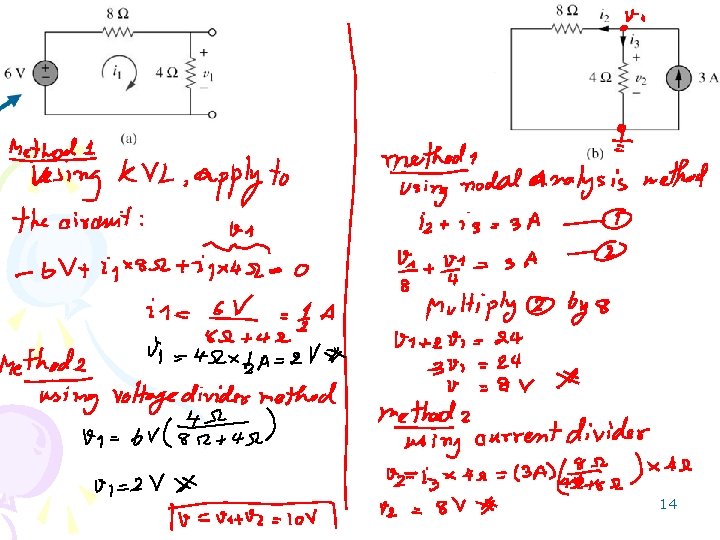 8 Ω
6 V
i1
4 Ω
+
v1
−
(a)
Method 1
Using KVL, apply to
the circuit:
v1
− 6V + i1×8Ω + i1×4Ω = 0
i1 = 6V / 8Ω+4Ω = 1/2 A
v1 = 4Ω × 1/2 A = 2V
Method 2
using voltage divider method
v1 = 6V ( 4Ω / 8Ω+4Ω )
v1 = 2V
v = v1+v2 = 10V
8 Ω
i2
v1
i3
+
4 Ω
v2
−
3 A
(b)
method 1
using nodal analysis method
i2 + i3 = 3A — ①
v1/8 + v1/4 = 3A — ②
Multiply ② by 8
v1 + 2v1 = 24
3v1 = 24
v = 8V
method 2
using current divider
v2 = i3 × 4Ω = (3A) ( 8Ω / 4Ω+8Ω ) × 4Ω
v2 = 8V
14